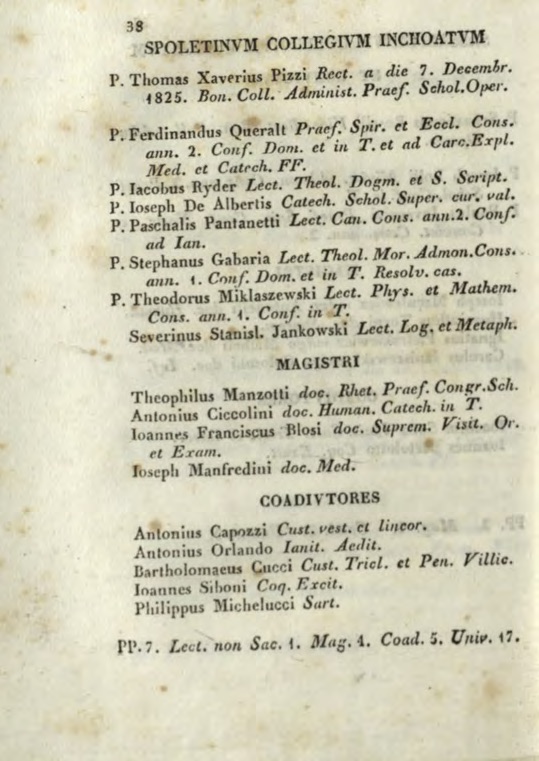 38
SPOLETINVM COLLEGIVM INCHOATVM
P. Thomas Xaverius Pizzi Rect. a die 7. Decembr.
1825. Bon. Coll. Administ. Praef. Schol.Oper.
P. Ferdinandus Queralt Praef. Spir. et Eccl. Cons.
ann. 2. Conf. Dom. et in T. et ad Carc.Expl.
Med. et Catech. FF.
P. Iacobus Ryder Lect. Theol. Dogm. et S. Script.
P. Ioseph De Albertis Catech. Schol. Super. cur. val.
P. Paschalis Pantanetti Lect. Can. Cons. ann.2. Conf.
ad Ian.
P. Stephanus Gabaria Lect. Theol. Mor. Admon.Cons.
ann. 1. Conf. Dom. et in T. Resolv. cas.
P. Theodorus Miklaszewski Lect. Phys. et Mathem.
Cons. ann. 1. Conf. in T.
Severinus Stanisl. Jankowski Lect. Log. et Metaph.
MAGISTRI
Theophilus Manzotti doc. Rhet. Praef. Congr.Sch.
Antonius Ciccolini doc. Human. Catech. in T.
Ioannes Franciscus Blosi doc. Suprem. Visit. Or.
et Exam.
Ioseph Manfredini doc. Med.
COADIVTORES
Antonius Capozzi Cust. vest. et lincor.
Antonius Orlando Ianit. Aedit.
Bartholomaeus Cucci Cust. Tricl. et Pen. Villic.
Ioannes Siboni Coq. Excit.
Philippus Michelucci Sart.
PP. 7. Lect. non Sac. 1. Mag. 4. Coad. 5. Univ. 17.